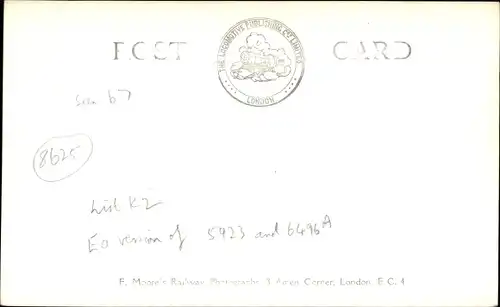 POST CARD
THE LOCOMOTIVE PUBLISHING CO LIMITED
LONDON
8625
List K2
Ea version of 5923 and 6496A
F. Moore's Railway Photographs, 3 Amen Corner, London, E.C. 4